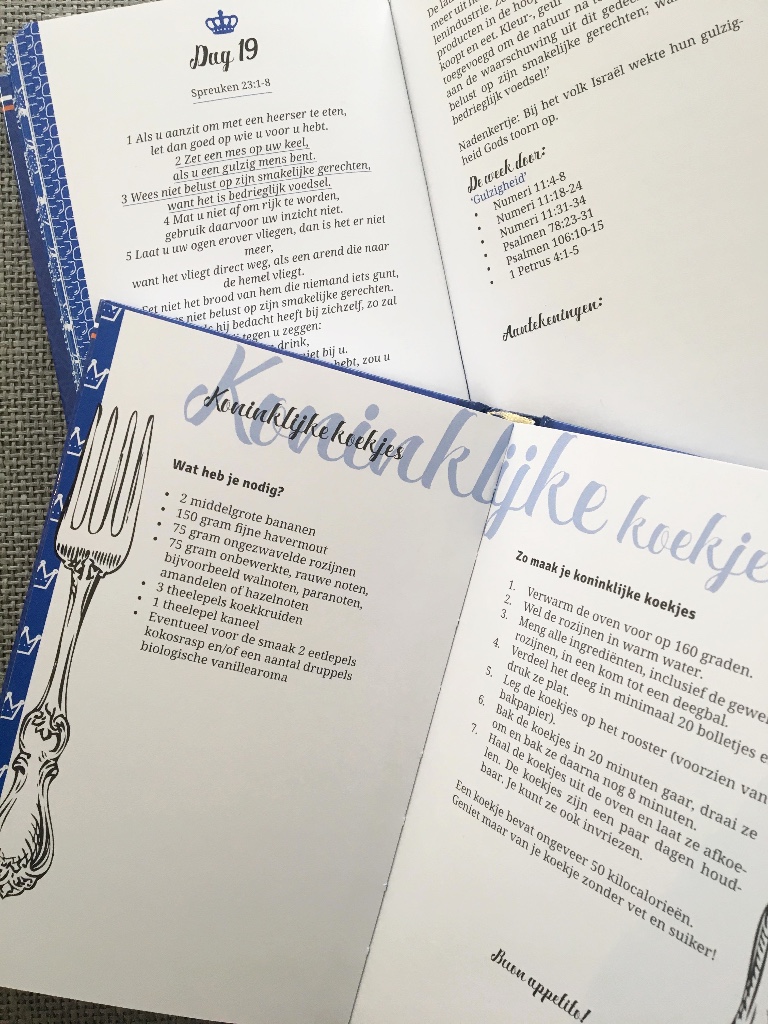 Dag 19
Spreuken 23:1-8
1 Als u aanzit om met een heerser te eten,
let dan goed op wie u voor u hebt.
2 Zet een mes op uw keel,
als u een gulzig mens bent.
3 Wees niet belust op zijn smakelijke gerechten,
want het is bedrieglijk voedsel.
4 Mat u niet af om rijk te worden,
gebruik daarvoor uw inzicht niet.
5 Laat u uw ogen erover vliegen, dan is het er niet
meer,
want het vliegt direct weg, als een arend die naar
de hemel vliegt.
Eet niet het brood van hem die niemand iets gunt,
niet belust op zijn smakelijke gerechten.
hij bedacht heeft bij zichzelf, zo zal
tegen u te zeggen:
drink,
niet bij u.
hebt, zou u
meer uit
lenindustrie.
producten in de
koopt en eet. Kleur-, geur
toegevoegd om de natuur na te
aan de waarschuwing uit dit
belust op zijn smakelijke gerechten;
bedrieglijk voedsel!'
Nadenkertje: Bij het volk Israël wekte hun gulzig-
heid Gods toorn op.
De week door:
'Gulzigheid'
• Numeri 11:4-8
• Numeri 11:18-24
• Numeri 11:31-34
• Psalmen 78:23-31
• Psalmen 106:10-15
• 1 Petrus 4:1-5
Aantekeningen:
Koninklijke koekje
Koninklijke koekjes
Wat heb je nodig?
• 2 middelgrote bananen
• 150 gram fijne havermout
• 75 gram ongezwavelde rozijnen
• 75 gram onbewerkte, rauwe noten,
bijvoorbeeld walnoten, paranoten,
amandelen of hazelnoten
• 3 theelepels koekkruiden
• 1 theelepel kaneel
• Eventueel voor de smaak 2 eetlepels
kokosrasp en/of een aantal druppels
biologische vanillearoma
Zo maak je koninklijke koekjes
1. Verwarm de oven voor op 160 graden.
2. Wel de rozijnen in warm water.
3. Meng alle ingrediënten, inclusief de gewel
rozijnen, in een kom tot een deegbal.
4. Verdeel het deeg in minimaal 20 bolletjes e
druk ze plat.
5. Leg de koekjes op het rooster (voorzien van
bakpapier).
6. Bak de koekjes in 20 minuten gaar, draai ze
om en bak ze daarna nog 8 minuten.
7. Haal de koekjes uit de oven en laat ze afkoe-
len. De koekjes zijn een paar dagen houd-
baar. Je kunt ze ook invriezen.
Een koekje bevat ongeveer 50 kilocalorieën.
Geniet maar van je koekje zonder vet en suiker!
Buon appetito!